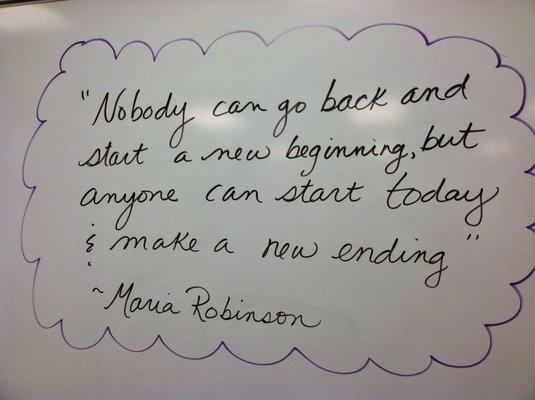 "Nobody can go back and
start a new beginning, but
anyone can start today
& make a new ending"
~Maria Robinson